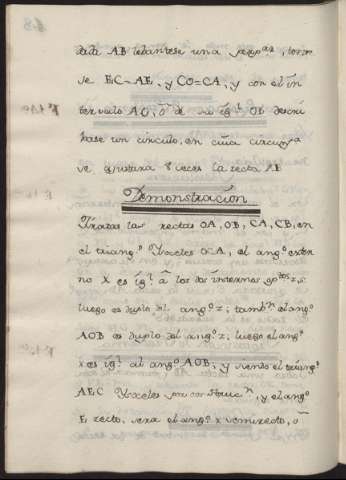 dada AB levantese una perp.ar, tome
se EC=AE, y CO=CA, y con el in
tervalo AO, ô de su ig.l OB descri
base un circulo, en cuia circunf.a
se ajustara 8 veces la recta AB
Demonstración
Tiradas las rectas OA, OB, CA, CB, en
el triang.o Ysoceles OCA, el ang.o exter
no X es ig.l â los dos internos op.tos z, s
luego es duplo del ang.o z; tamb.n el ang.o
AOB es duplo del ang.o z; luego el ang.o
x es ig.l al ang.o AOB, y siendo el triang.o
AEC Ysoceles por construc.n, y el ang.o
E recto, sera el ang.o x semirecto, ô